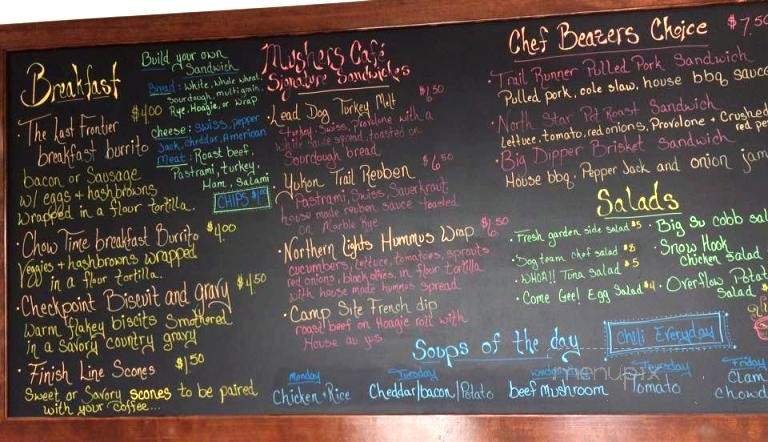 Breakfast
$4.00
• The Last Frontier
breakfast burrito
bacon or Sausage
w/ eggs + hashbrowns
wrapped in a flour tortilla.
• Chow Time breakfast Burrito $4.00
Veggies + hashbrowns wrapped
in a flour tortilla.
• Checkpoint Biscuit and gravy $4.50
Warm flakey biscits Smothered
in a savory country gravy
• Finish Line Scones $1.50
Sweet or Savory scones to be paired
with your coffee...
Build your own
Sandwich
Bread: White, Whole wheat,
Sourdough, multigrain,
Rye, Hoagie, or Wrap
cheese: Swiss, pepper
Jack, cheddar, American
Meat: Roast beef,
Pastrami, turkey,
Ham, Salami
CHIPS
Mushers Café
Signature Sandwiches
• Lead Dog Turkey Melt $6.50
turkey, Swiss, provolone with a
house spread, toasted on
Sourdough bread
• Yukon Trail Reuben $6.50
Pastrami, Swiss, Sauerkraut,
house made reuben sauce toasted
on Marble Rye
• Northern Lights Hummus Wrap
cucumbers, lettuce, tomatoes, sprouts
red onions, black olives, in flour tortilla
with house made hummus spread
• Camp Site French dip
roast beef on Hoagie roll with
House au jus
Chef Beazers Choice $7.50
• Trail Runner Pulled Pork Sandwich
Pulled pork, cole slaw, house bbq sauce
• North Star Pot Roast Sandwich
Lettuce, tomato, red onions, Provolone + Crushed
red pe
• Big Dipper Brisket Sandwich
House bbq, Pepper Jack and onion jam
Salads
• Fresh garden side salad $5
• Dog team chef salad $8
• WHOA!! Tuna salad $5
• Come Gee! Egg Salad $4
• Big Su cobb sal
• Snow Hook
Chicken salad
• Overflow Potat
Salad $
Soups of the day
Chili Everyday
Monday
Chicken + Rice
Tuesday
Cheddar/bacon/Potato
wednesday
beef Mushroom
Thursday
Tomato
Friday
Clam
chowd
menupix